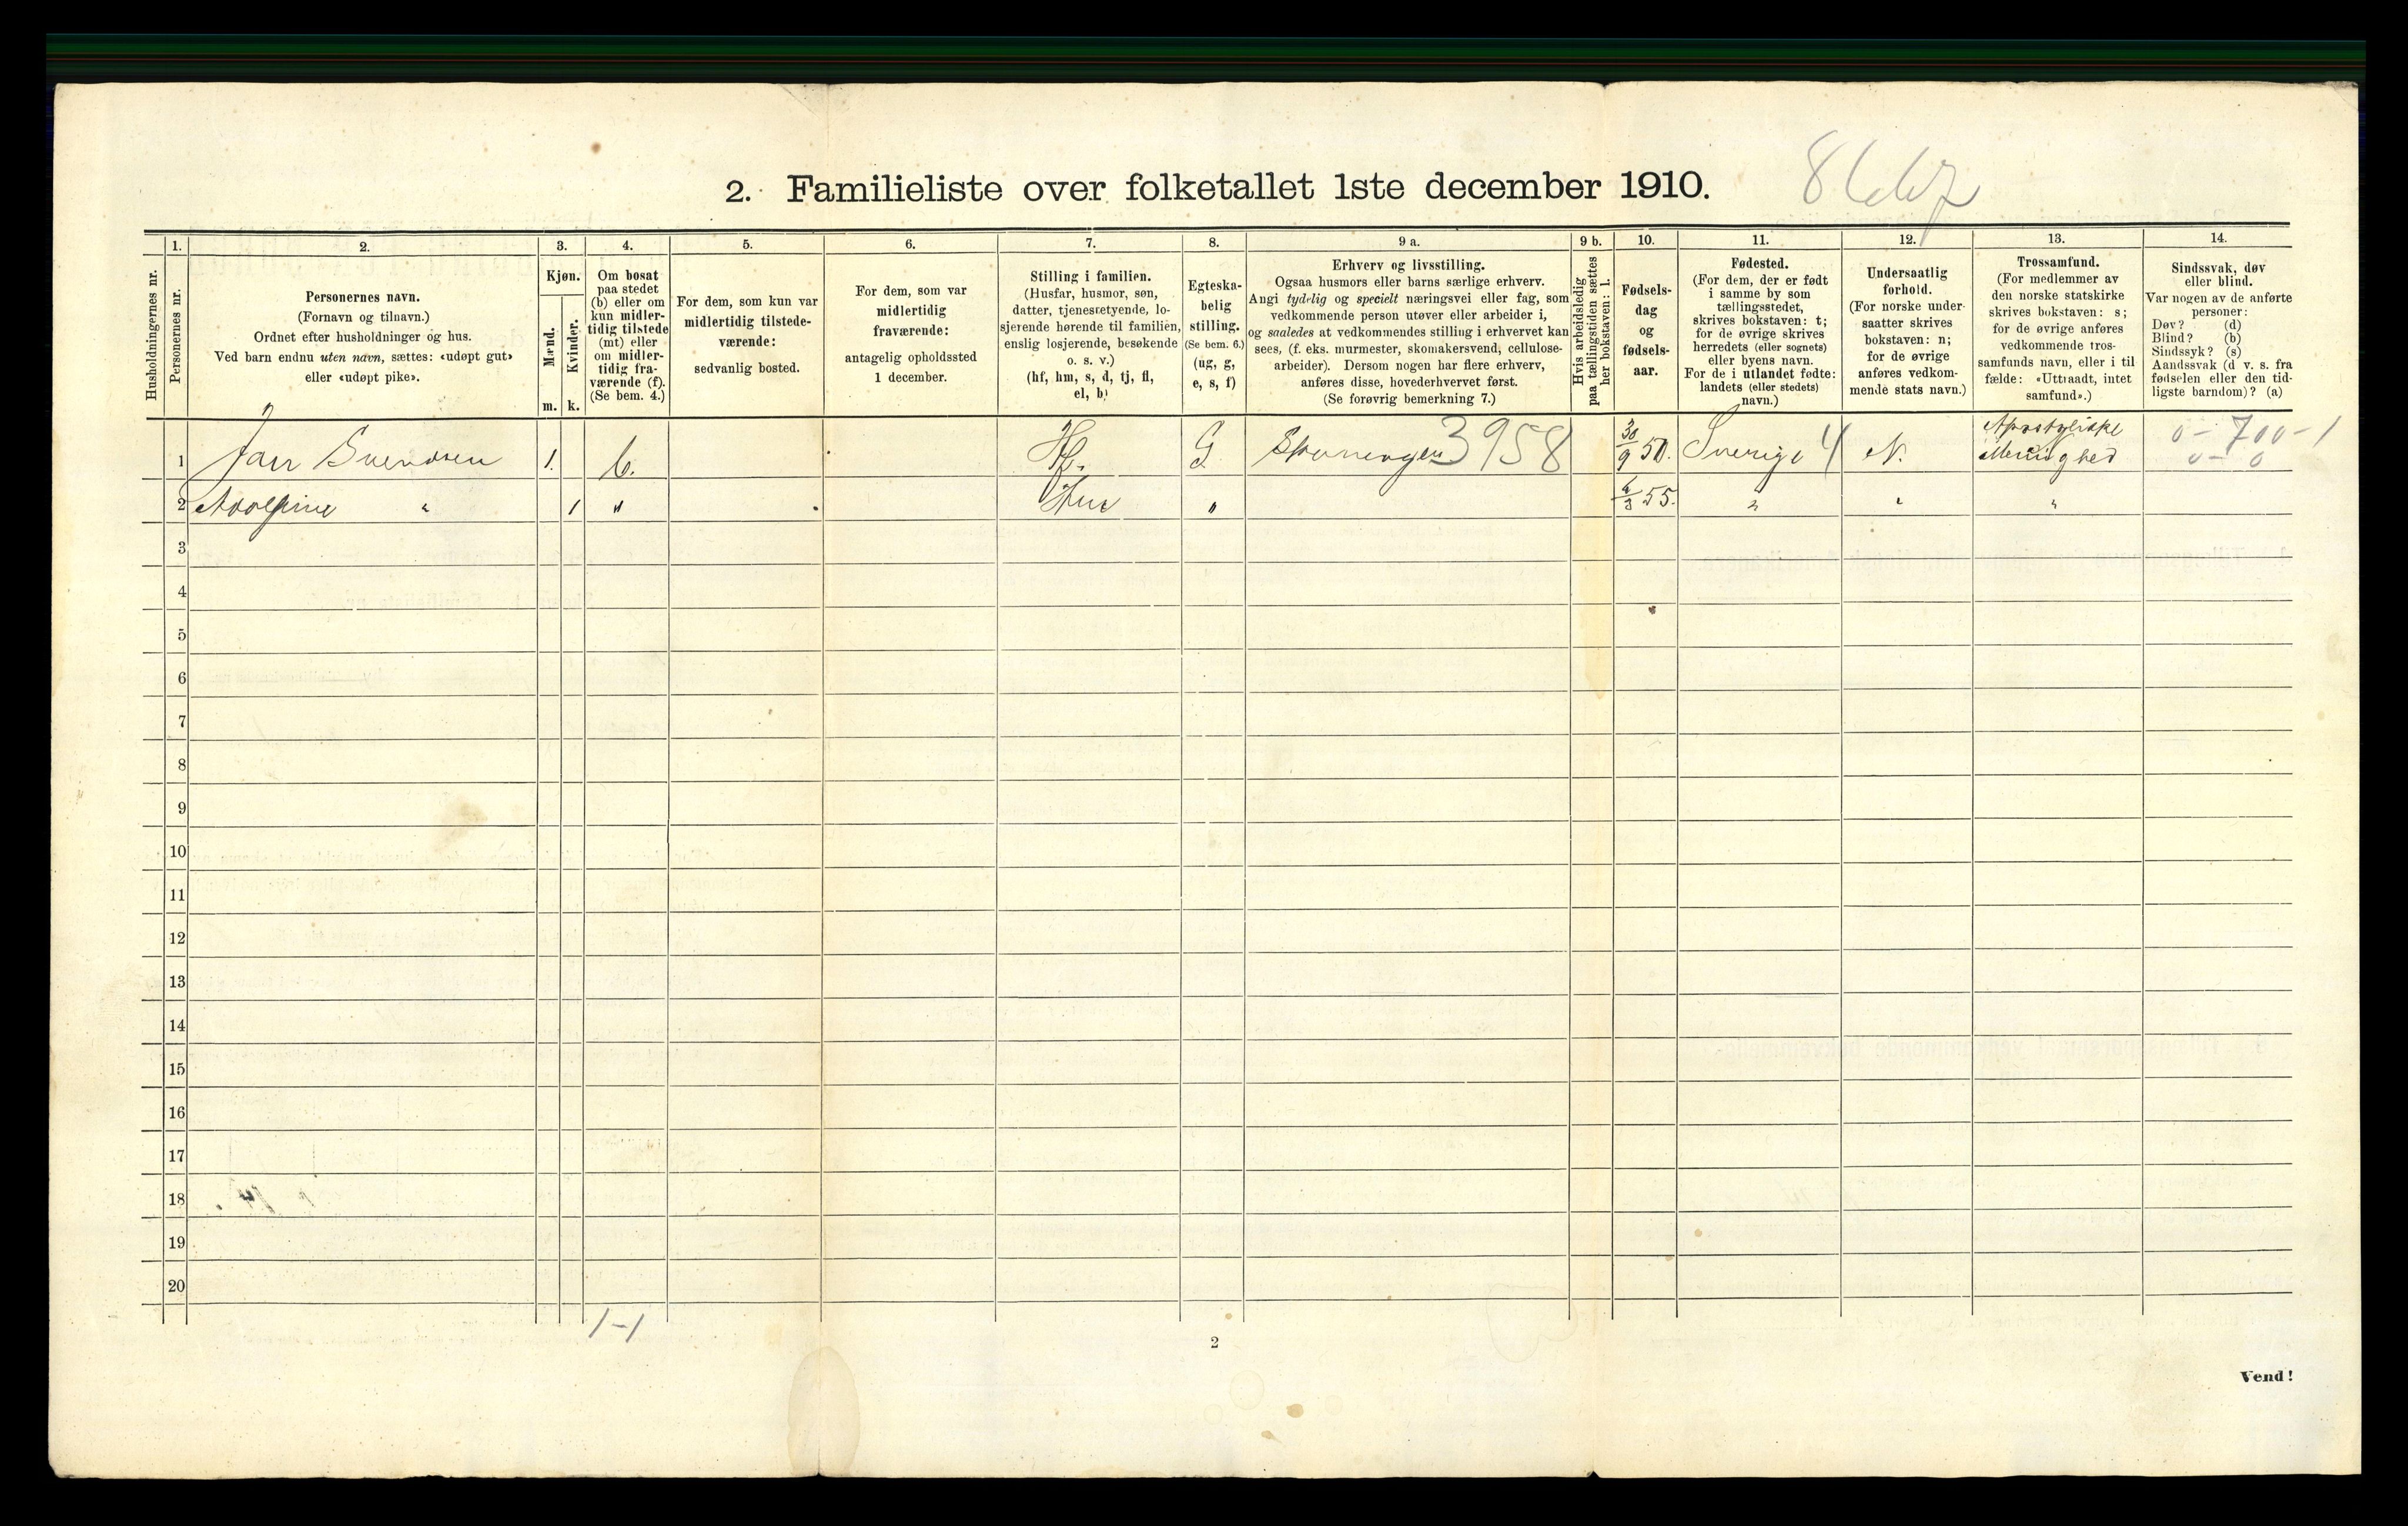 2. Familieliste over folketallet 1ste december 1910.
Husholdningernes nr.
1.
Personernes nr.
2.
Personernes navn.
(Fornavn og tilnavn.)
Ordnet efter husholdninger og hus.
Ved barn endnu uten navn, sættes: «udøpt gut»
eller «udøpt pike».
3.
Kjøn.
Mænd.
Kvinder.
m. k.
4.
Om bosat
paa stedet
(b) eller om
kun midler-
tidig tilstede
(mt) eller
om midler-
tidig fra-
værende (f).
(Se bem. 4.)
5.
For dem, som kun var
midlertidig tilstede-
værende:
sedvanlig bosted.
6.
For dem, som var
midlertidig
fraværende:
antagelig opholdssted
1 december.
7.
Stilling i familien.
(Husfar, husmor, søn,
datter, tjenestetyende, lo-
sjerende hørende til familien,
enslig losjerende, besøkende
o. s. v.)
(hf, hm, s, d, tj, fl,
el, b)
8.
Egteska-
belig
stilling.
(Se bem. 6.)
(ug, g,
e, s, f)
9 a.
Erhverv og livsstilling.
Ogsaa husmors eller barns særlige erhverv.
Angi tydelig og specielt næringsvei eller fag, som
vedkommende person utøver eller arbeider i,
og saaledes at vedkommendes stilling i erhvervet kan
sees, (f. eks. murmester, skomakersvend, cellulose-
arbeider). Dersom nogen har flere erhverv,
anføres disse, hovederhvervet først.
(Se forøvrig bemerkning 7.)
9 b.
Hvis arbeidsledig
paa tællingstiden sættes
her bokstaven: l.
10.
Fødsels-
dag
og
fødsels-
aar.
11.
Fødested.
(For dem, der er født
i samme by som
tællingsstedet,
skrives bokstaven: t;
for de øvrige skrives
herredets (eller sognets)
eller byens navn.
For de i utlandet fødte:
landets (eller stedets)
navn.)
12.
Undersaatlig
forhold.
(For norske under-
saatter skrives
bokstaven: n;
for de øvrige
anføres vedkom-
mende stats navn.)
13.
Trossamfund.
(For medlemmer av
den norske statskirke
skrives bokstaven: s;
for de øvrige anføres
vedkommende tros-
samfunds navn, eller i til
fælde: «Uttraadt, intet
samfund».)
14.
Sindssvak, døv
eller blind.
Var nogen av de anførte
personer:
Døv? (d)
Blind? (b)
Sindssyk? (s)
Aandssvak (d v. s. fra
fødselen eller den tid-
ligste barndom)? (a)
1 Jan Svendsen 1. b. Hf. G 3958 30/9 50. Sverige 4 N. Apostoliske Menighed 0-700-1
0-0
2 Adolfine " 1 " Hm " 55. " " "
3
4
5
6
7
8
9
10
11
12
13
14
15
16
17
18
19
20
1-1
2
Vend!